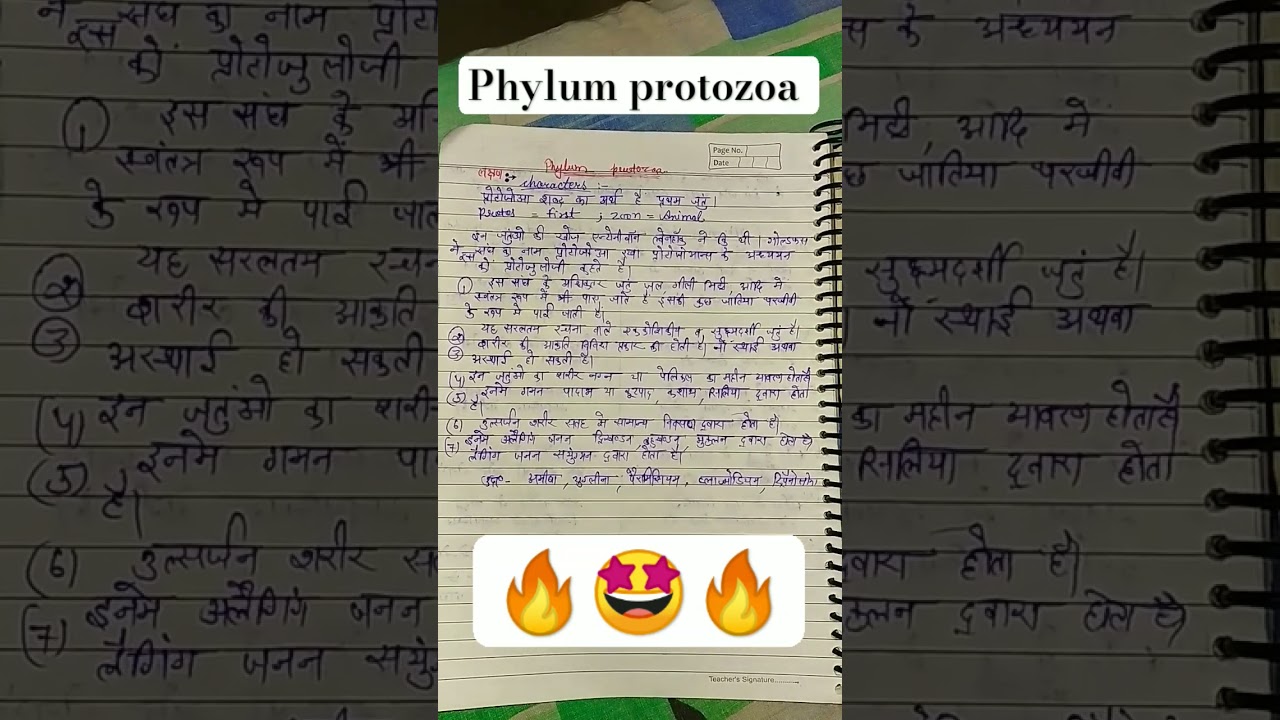 Phylum protozoa
Page No.
Date
Phylum protozoa
लक्षण :→ characters :-
प्रोटोजोआ शब्द का अर्थ है प्रथम जंतु।
Protos = first ; zoon = Animal
इन जंतुओ की खोज ल्यूवेनहॉक ने कि थी। गोल्डफस
ने इस संघ का नाम प्रोटोजोआ रखा प्रोटोजोआन्स के अध्ययन
को प्रोटोजुलोजी कहते है।
(1) इस संघ के अधिकांर जंतु जल गीली मिट्टी, आदि मे
स्वंतत्र रूप में भी पाए जाते है इसकी कुछ जातिया परजीवी
के रूप मे पाई जाती है।
(2) यह सरलतम रचना वाले व सुक्ष्मदर्शी जुतुं है।
(3) शरीर की आकृति विभिन्न प्रकार की होती है। जो स्थाई अथवा
अस्थाई हो सकती है।
(4) इन जुतुंओ का शरीर नग्न या पेलिकल का महीन आवरण होताहै
(5) इनमे गमन पादाभ या कूटपाद, कशाभ, सिलिया द्वारा होता
है।
(6) उत्सर्जन शरीर सतह से सामान्य विसरण द्वारा होता है।
(7) इनमे अलैगिंग जनन द्विखण्डन, बहुखण्डन, मुकुलन द्वारा होता है।
लैगिंग जनन सयुंग्मन द्वारा होता है।
उदा०- अमीबा, युग्लीना, पैरामिशियम, प्लाज्मोडियम,
Teacher's Signature